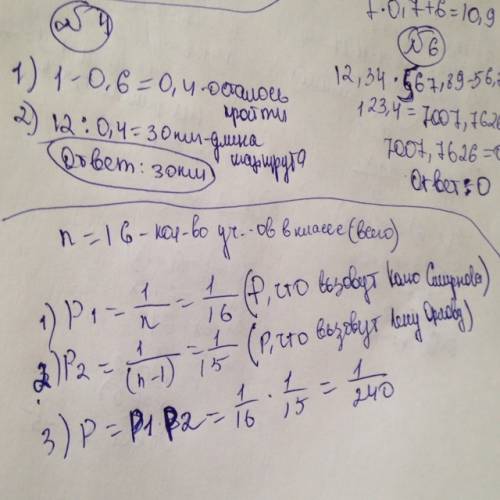 № 4
1) 1 - 0,6 = 0,4 - осталось
пройти
2) 12 : 0,4 = 30 км - длина
маршрута
Ответ: 30 км
7 · 0,7 + 6 = 10,9
№ 6
12,34 · 567,89 - 56,7
123,4 = 7007,7626
7007,7626 =
Ответ: 0
n = 16 - кол-во уч.-ов в классе (всего)
1) P1 = 1/n = 1/16 (P, что вызовут Колю Смирнова)
2) P2 = 1/(n-1) = 1/15 (P, что вызовут Лену Орлову)
3) P = P1 P2 = 1/16 · 1/15 = 1/240